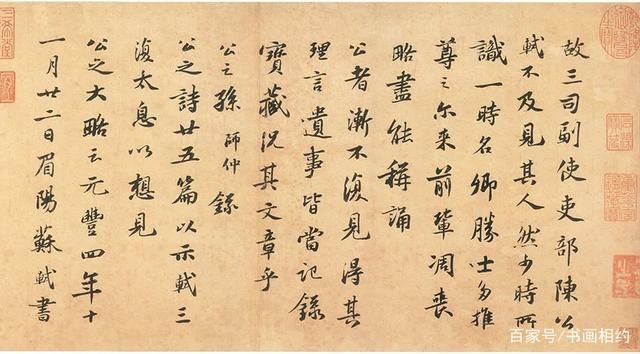 故三司副使吏部陳公
軾不及見其人然少時所
識一時名卿勝士多推
尊之尔来前輩凋喪
略盡能稱誦
公者漸不復見得其
理言遺事皆當記錄
寶藏況其文章乎
公之孫師仲錄
公之詩廿五篇以示軾三
復太息以想見
公之大略云元豐四年十
一月廿二日眉陽蘇軾書
百家号/书画相约